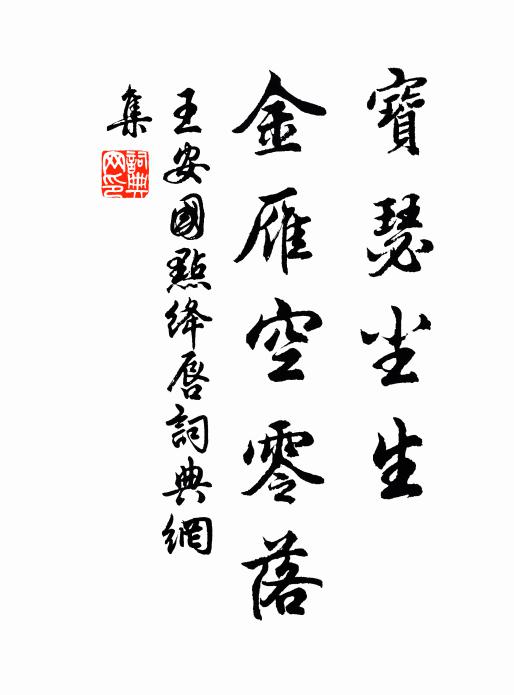 寶瑟尘生
金雁空零落
王安國點絳唇詞典網
集
詞典
网印